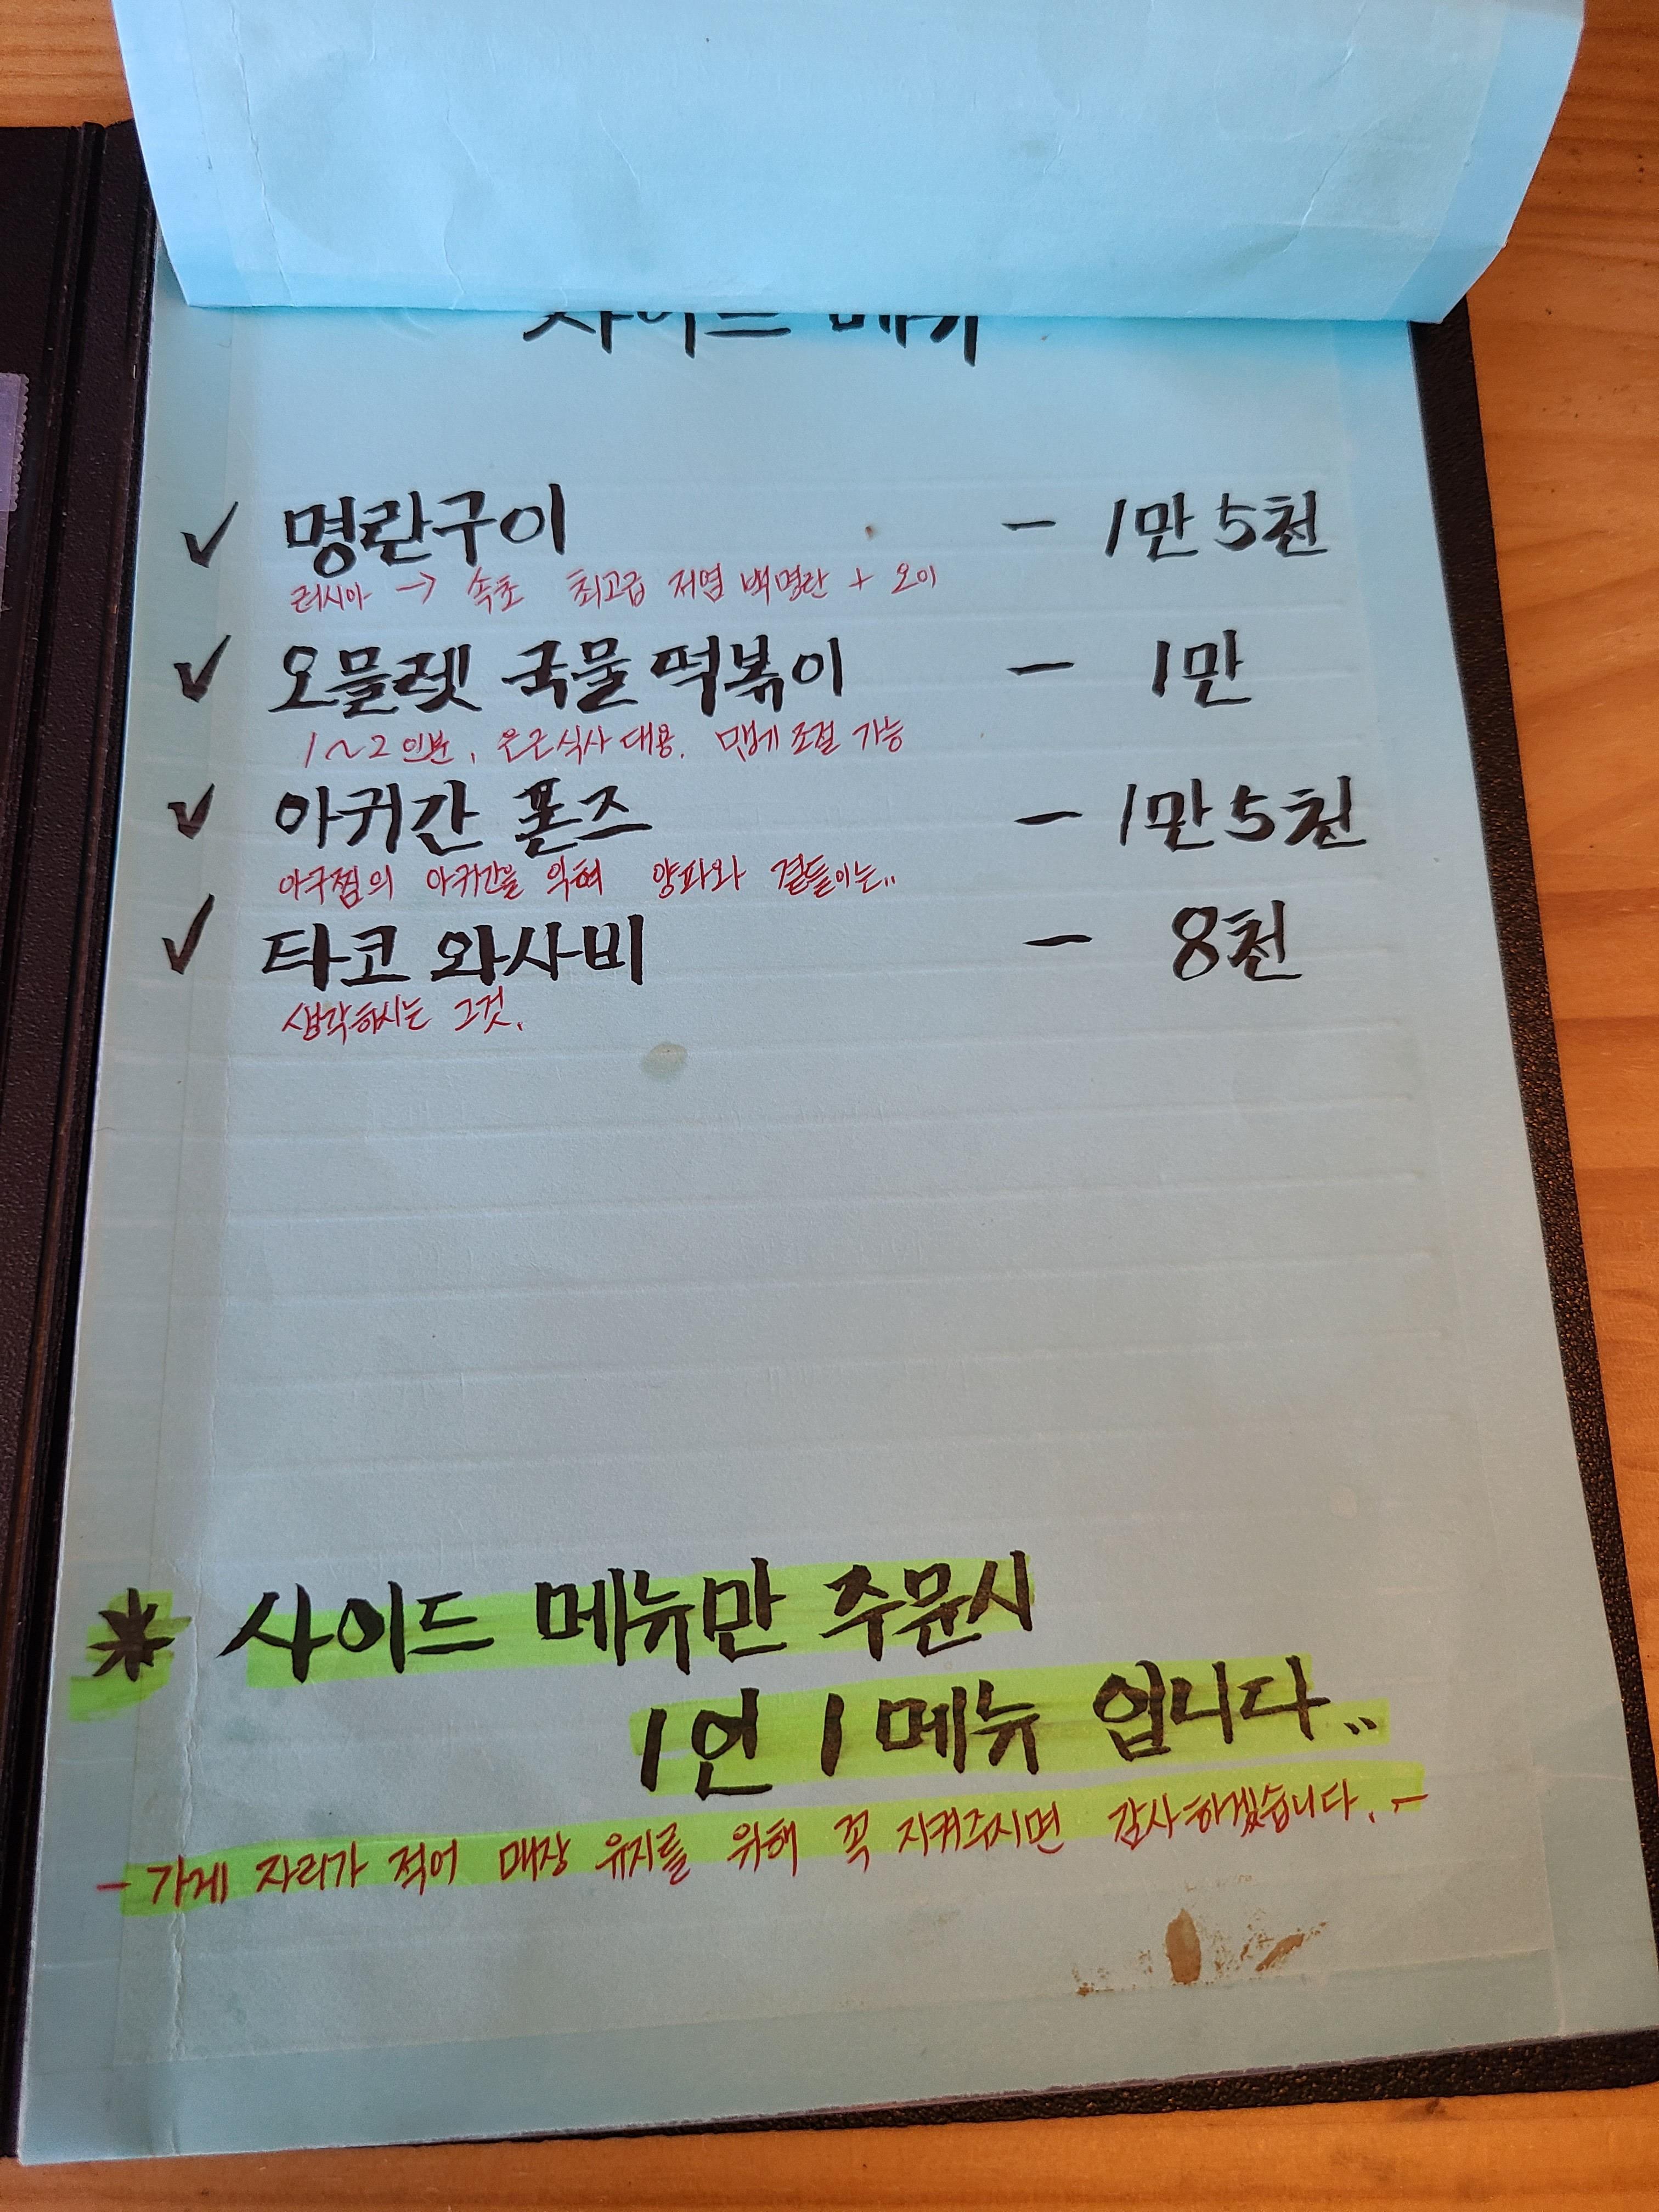 사이드 메뉴
✓ 명란구이 - 1만 5천
러시아 → 속초 최고급 저염 백명란 + 오이
✓ 오믈렛 국물 떡볶이 - 1만
1~2인분, 은근 식사 대용. 맵게 조절 가능
✓ 아귀간 폰즈 - 1만 5천
아구찜의 아귀간을 익혀 양파와 곁들이는..
✓ 타코 와사비 - 8천
생각하시는 그것.
* 사이드 메뉴만 주문시
1인 1메뉴 입니다..
- 가게 자리가 적어 매장 유지를 위해 꼭 지켜주시면 감사하겠습니다. -